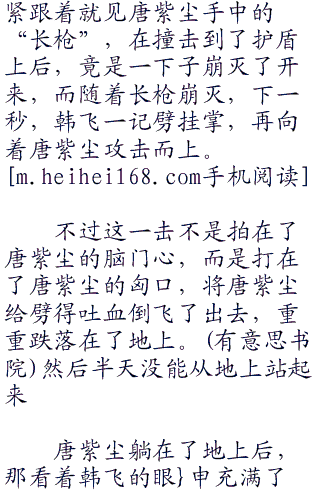 紧跟着就见唐紫尘手中的
“长枪”，在撞击到了护盾
上后，竟是一下子崩灭了开
来，而随着长枪崩灭，下一
秒，韩飞一记劈挂掌，再向
着唐紫尘攻击而上。
[m.heihei168.com手机阅读]
不过这一击不是拍在了
唐紫尘的脑门心，而是打在
了唐紫尘的匈口，将唐紫尘
给劈得吐血倒飞了出去，重
重跌落在了地上。(有意思书
院)然后半天没能从地上站起
来
唐紫尘躺在了地上后，
那看着韩飞的眼}申充满了